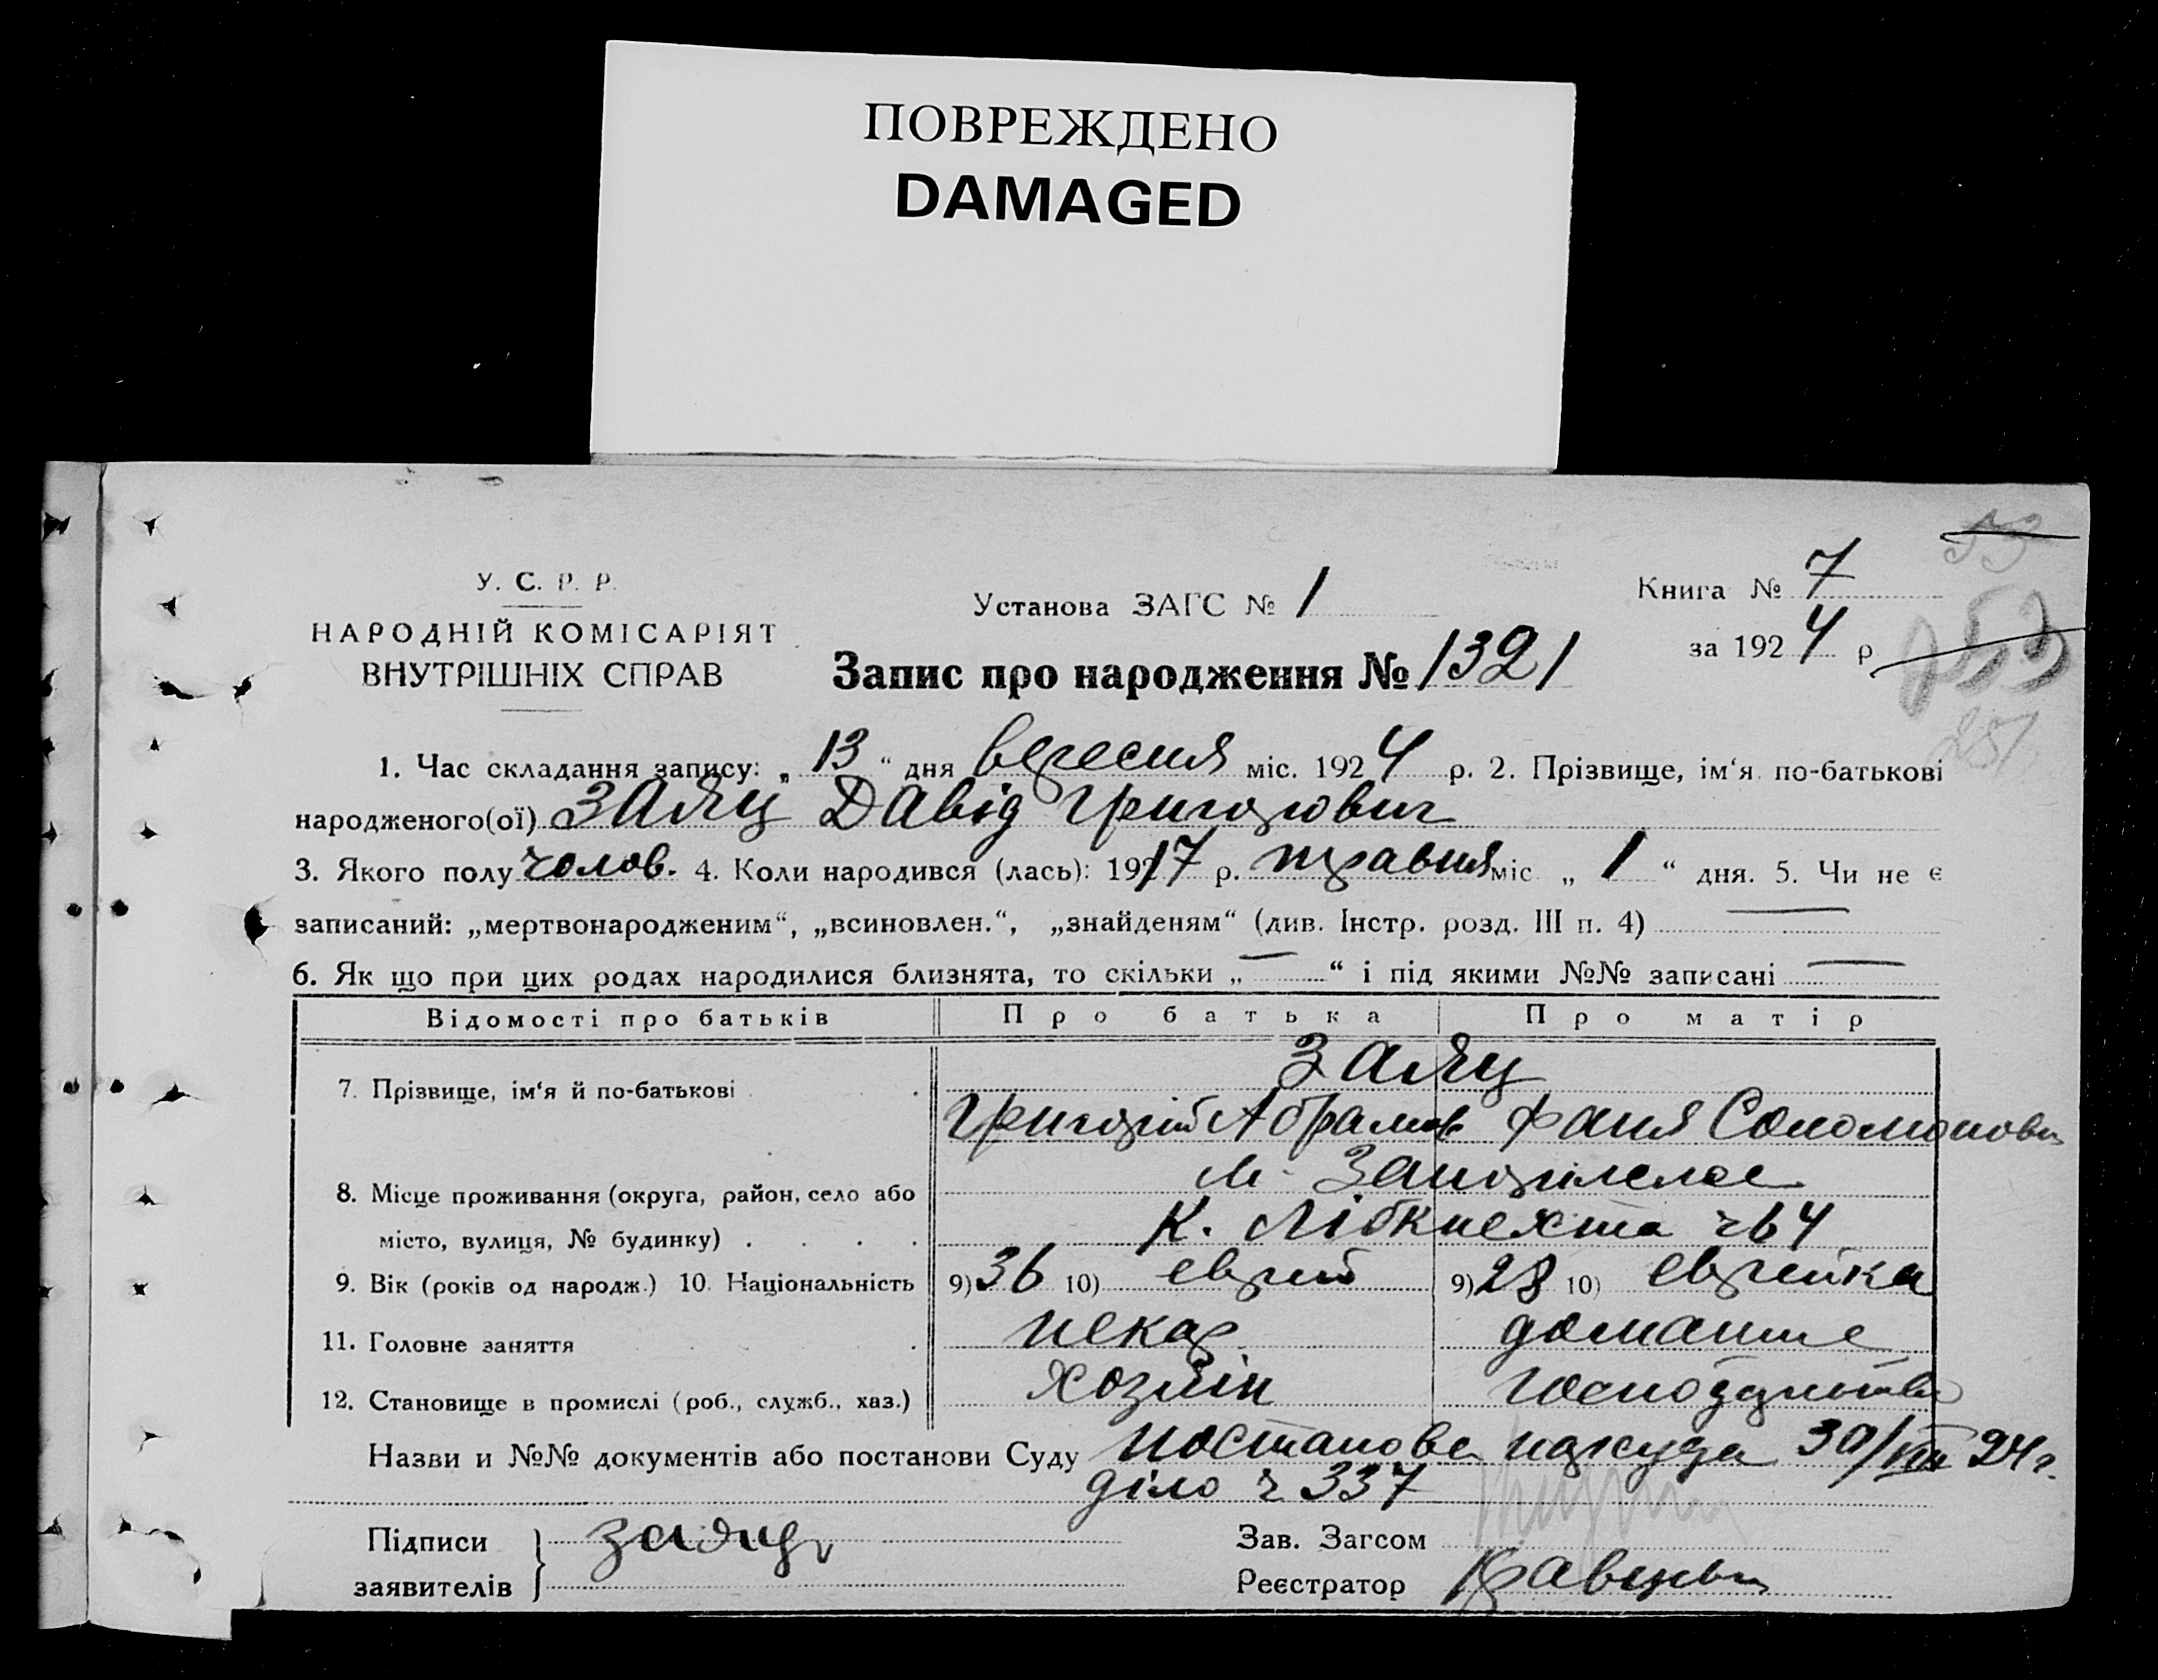 ПОВРЕЖДЕНО
DAMAGED
53
У. С. Р. Р.
НАРОДНІЙ КОМІСАРІЯТ
ВНУТРІШНІХ СПРАВ
Установа ЗАГС № 1
Книга № 7
за 1924 р
253
251
Запис про народження № 1321
1. Час складання запису: „ 13 “ дня вересня міс. 1924 р. 2. Прізвище, ім‘я по-батькові
народженого(ої) Заяц Давід Григорович
3. Якого полу чолов. 4. Коли народився (лась): 1917 р. травня міс „ 1 “ дня. 5. Чи не є
записаний: „мертвонародженим“, „всиновлен.“, „знайденям“ (див. Інстр. розд. III п. 4) —
6. Як що при цих родах народилися близнята, то скільки „ — “ і під якими №№ записані —
Відомості про батьків Про батька Про матір
Заяц
7. Прізвище, ім‘я й по-батькові
Григорій Абрамов Фаня Соломоновн
м. Запоріжжє
8. Місце проживання (округа, район, село або
місто, вулиця, № будинку) К. Лібкнехта ч 64
9. Вік (років од народж.) 10. Національність 9) 36 10) еврей 9) 28 10) еврейка
11. Головне заняття пекар домашнє
12. Становище в промислі (роб., служб., хаз.) хозяїн господарство
Назви и №№ документів або постанови Суду постанова нарсуда 30/VIII 24 г.
діло ч 337
Підписи заявителів заяц
Зав. Загсом
Реєстратор